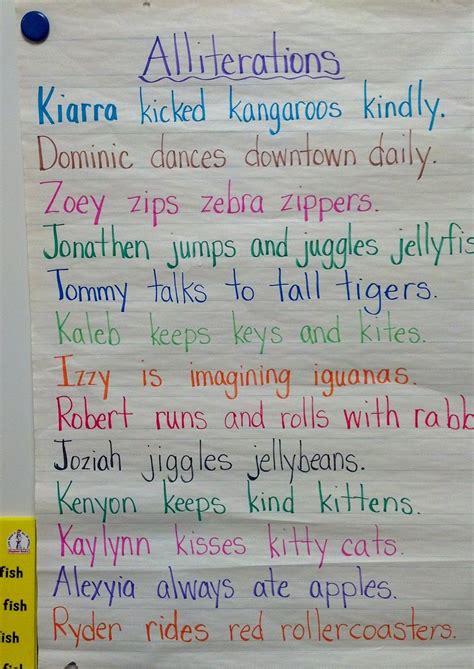 Alliterations
Kiarra kicked kangaroos kindly.
Dominic dances downtown daily.
Zoey zips zebra zippers.
Jonathen jumps and juggles jellyfis
Tommy talks to tall tigers.
Kaleb keeps keys and kites.
Izzy is imagining iguanas.
Robert runs and rolls with rabb
Joziah jiggles jellybeans.
Kenyon keeps kind kittens.
Kaylynn kisses kitty cats.
Alexyia always ate apples.
Ryder rides red rollercoasters.
fish
fish
fish